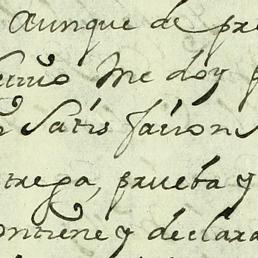 Aunque de pre
Me doy p
Satisfaiion
trega, prueba y
ontiene y declara